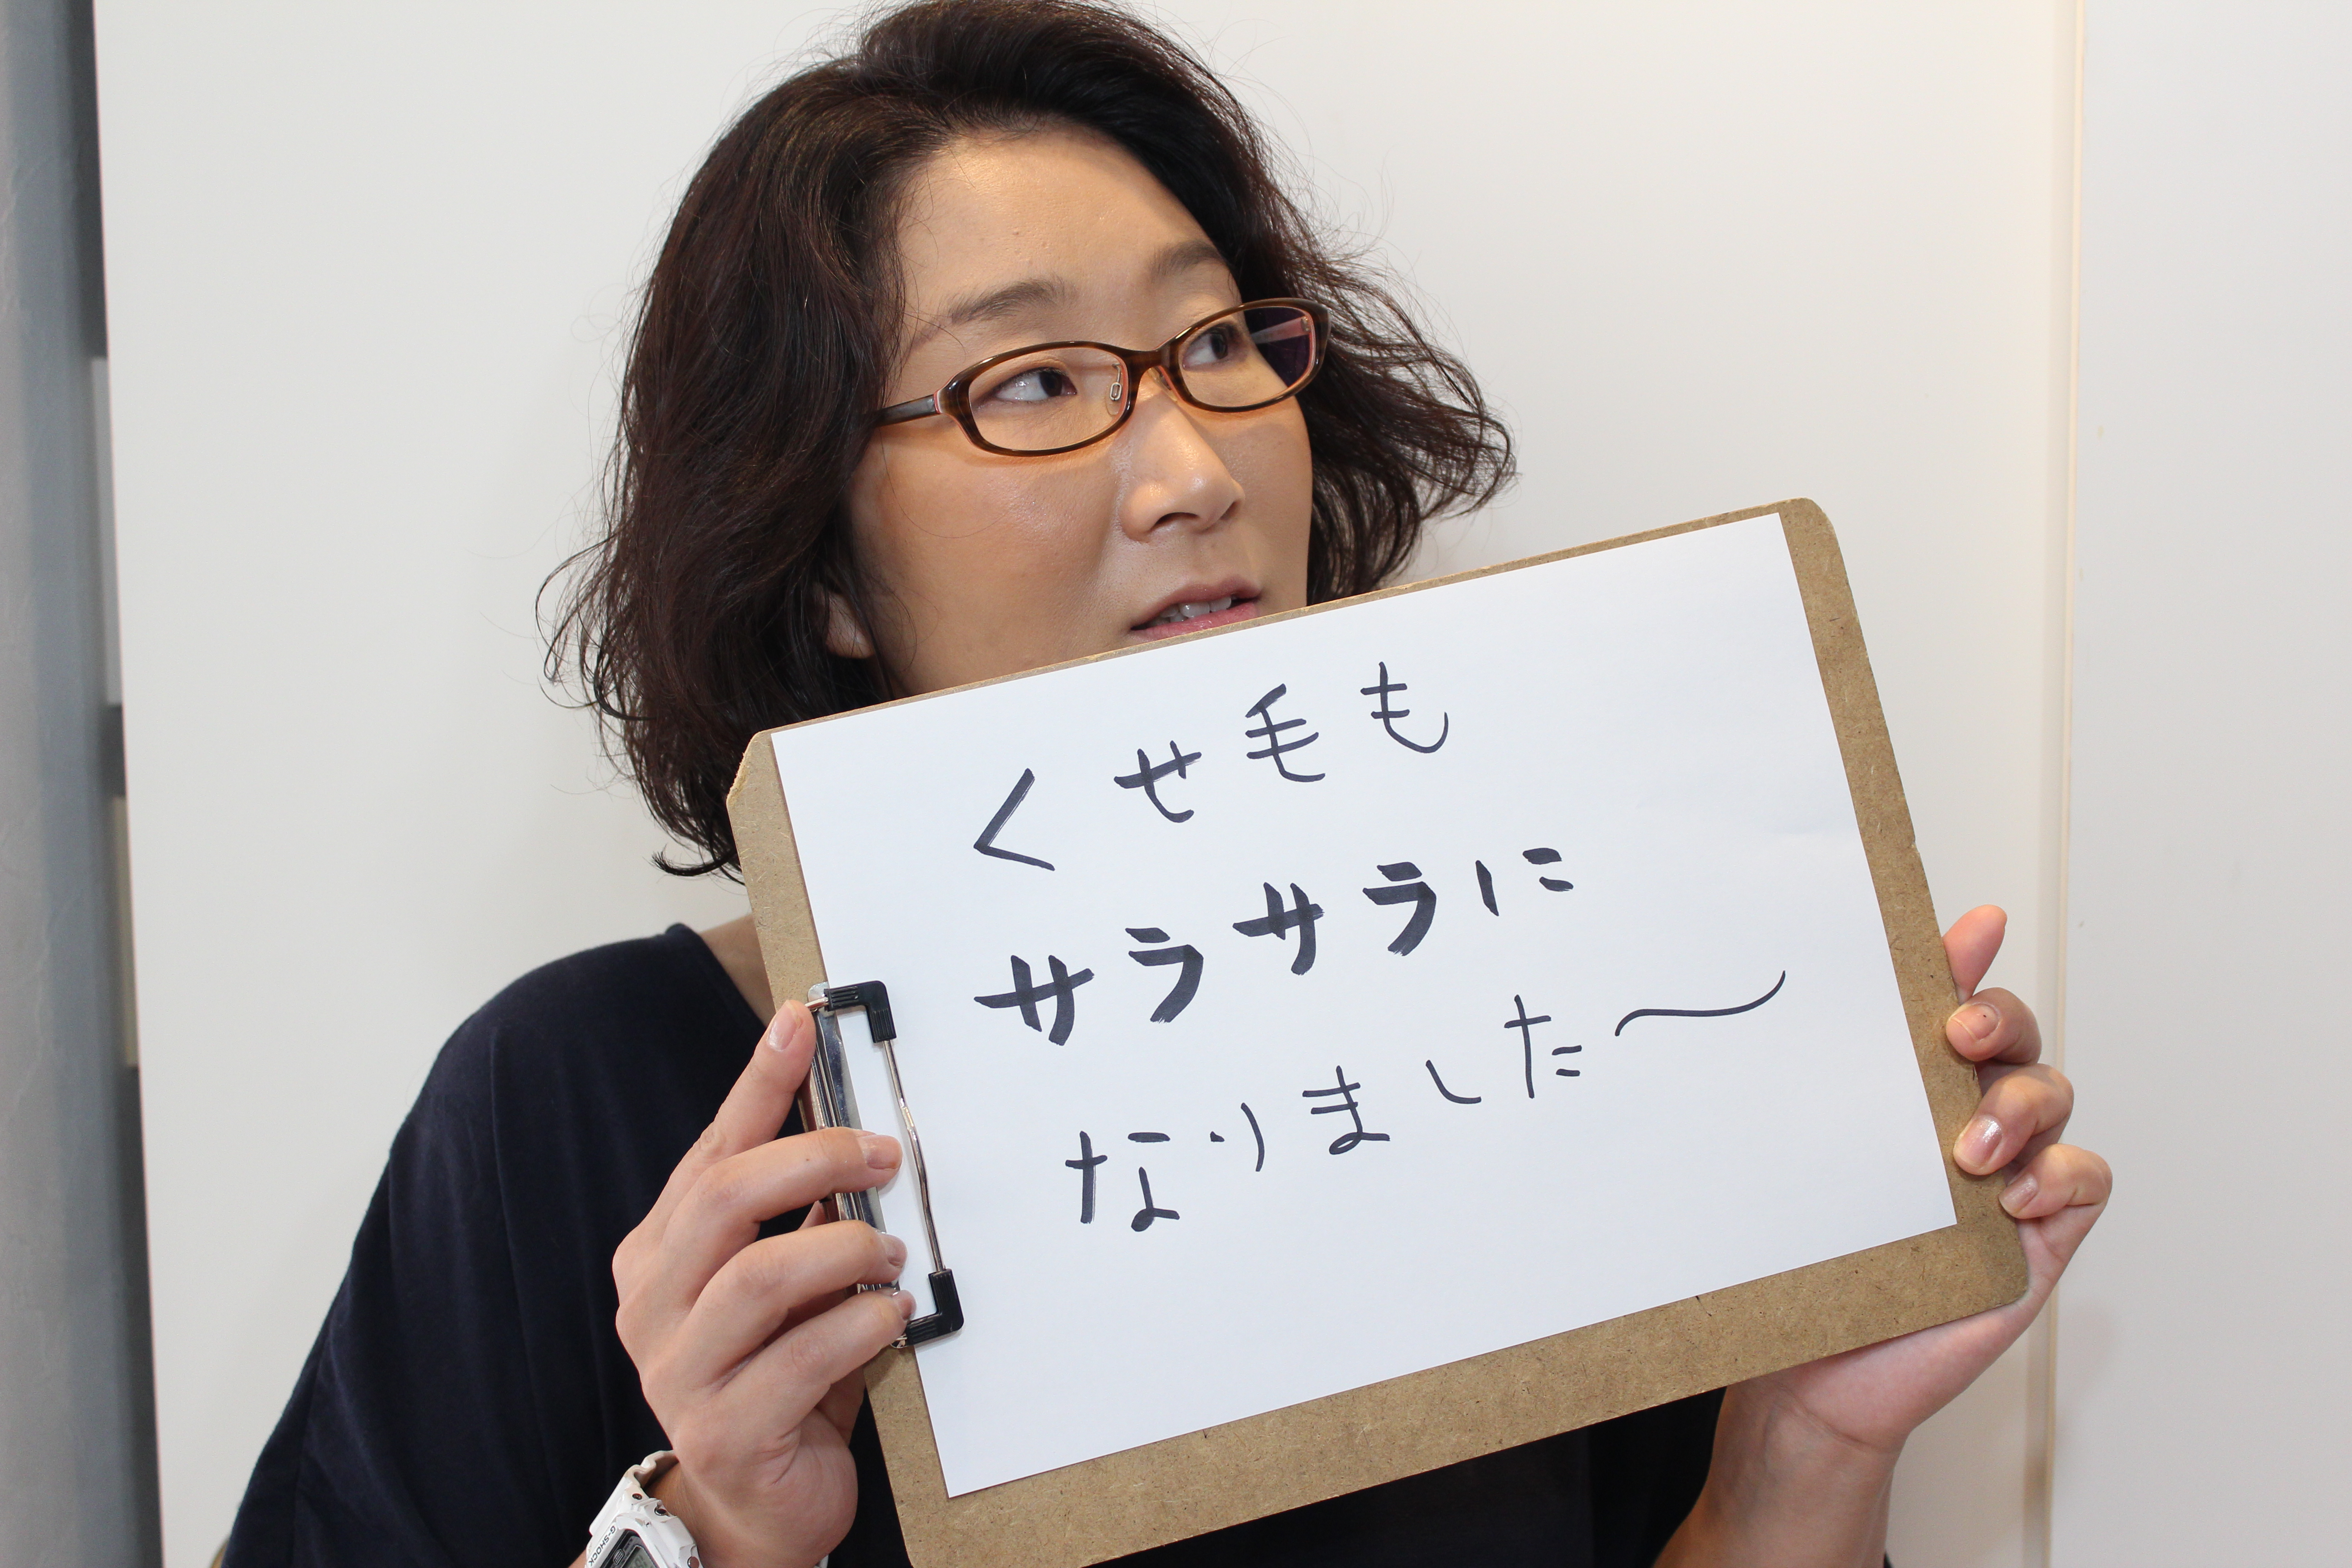 くせ毛も
サラサラに
なりました〜
G-SHOCK